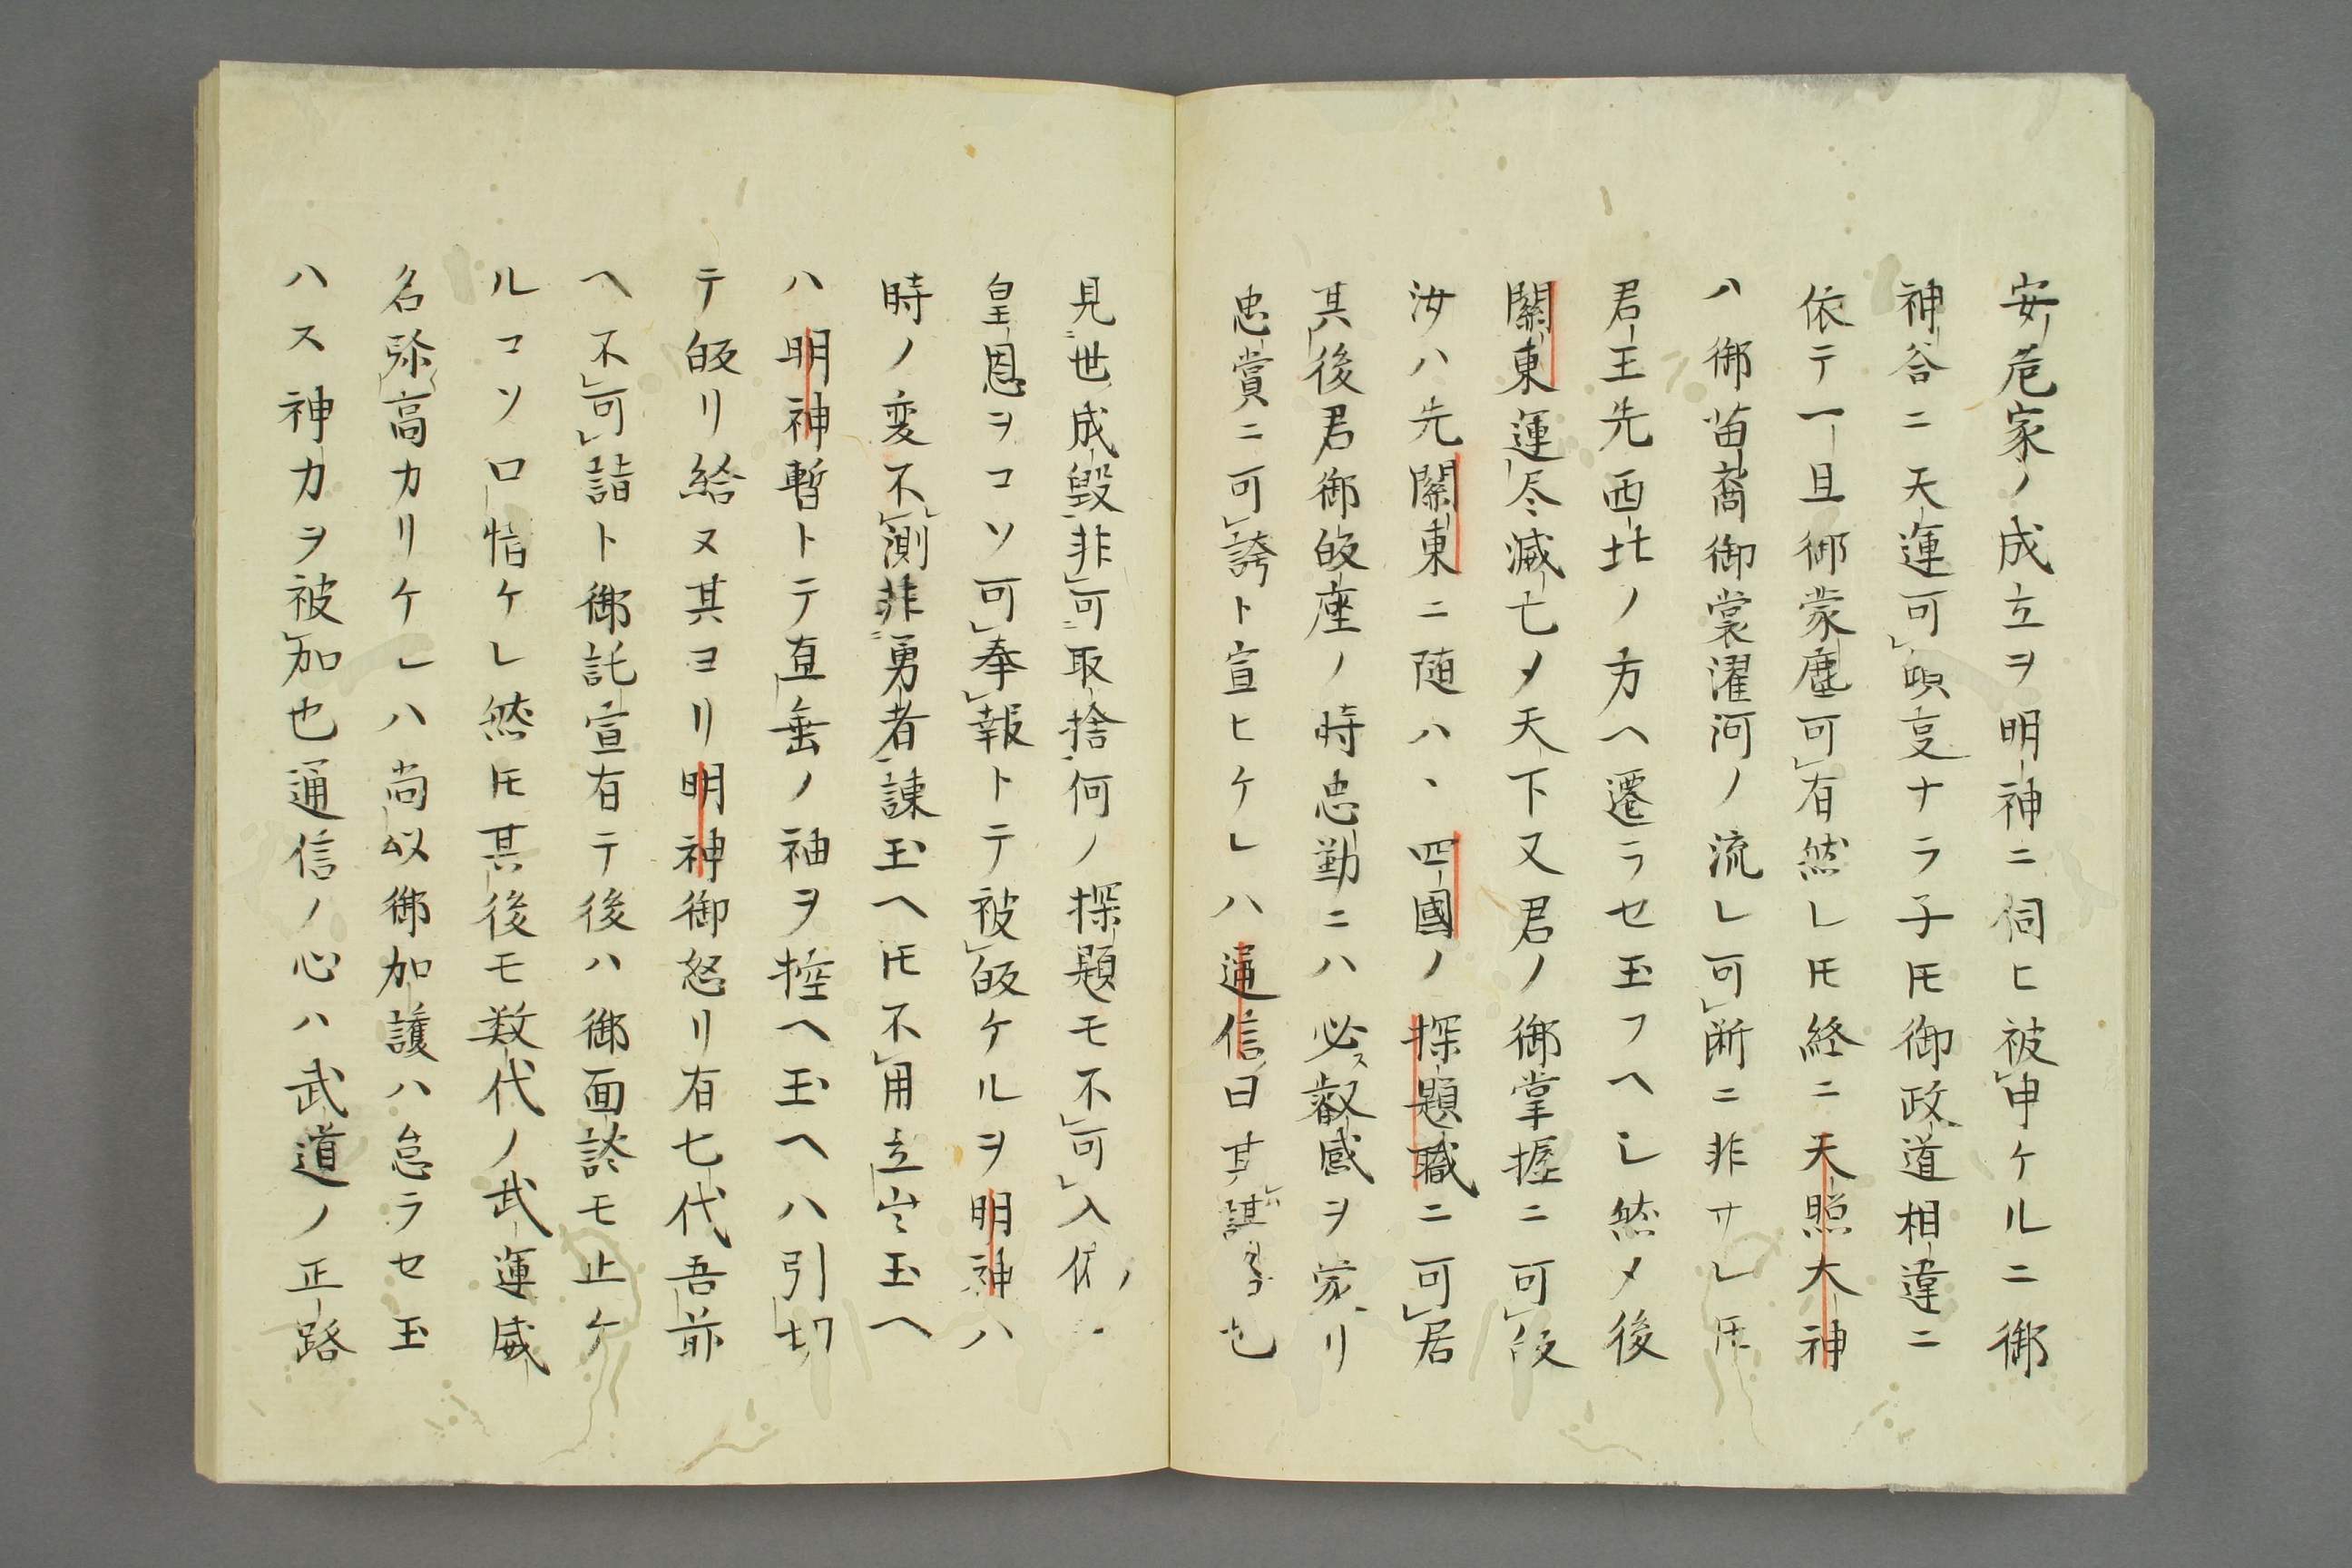 安危家ノ成立ヲ明神ニ伺ヒ被申ケルニ御
神答ニ天運可唄㕝ナラ子𪜈御政道相違ニ
依テ一旦御蒙塵可有然レ𪜈経ニ天照大神
ハ御苗裔御裳濯河ノ流レ可断ニ非サレ𪜈
君王先西北ノ方ヘ遷ラセ玉フヘシ然メ後
關東運尽滅亡メ天下又君ノ御掌握ニ可皈
汝ハ先關東ニ随ハヽ四國ノ探題職ニ可居
其後君御皈座ノ時忠勤ニハ必ス叡感ヲ蒙リ
忠賞ニ可誇ト宣ヒケレハ通信曰其謀也
見世成毀非可取捨何ノ探題モ不可入
皇恩ヲコソ可奉報トテ被皈ケルヲ明神ハ
時ノ変不測非勇者諫玉ヘ𪜈不用立出玉ヘ
ハ明神暫トテ直垂ノ袖ヲ控ヘ玉ヘハ引切
テ皈リ給ヌ其ヨリ明神御怒リ有七代吾前
ヘ不可詣ト御託宣有テ後ハ御面談モ止ケ
ルコソ口惜ケレ然𪜈其後モ数代ノ武運威
名弥高カリケレハ尚以御加護ハ怠ラセ玉
ハス神力ヲ被加也通信ノ心ハ武道ノ正路